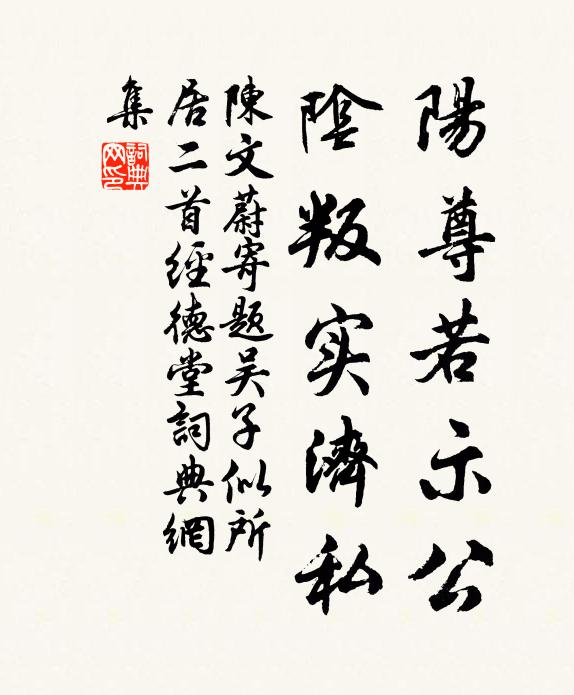 陽尊若示公
陰叛实濟私
陳文蔚寄題吴子似所
居二首經德堂詞典網
集
詞典网印